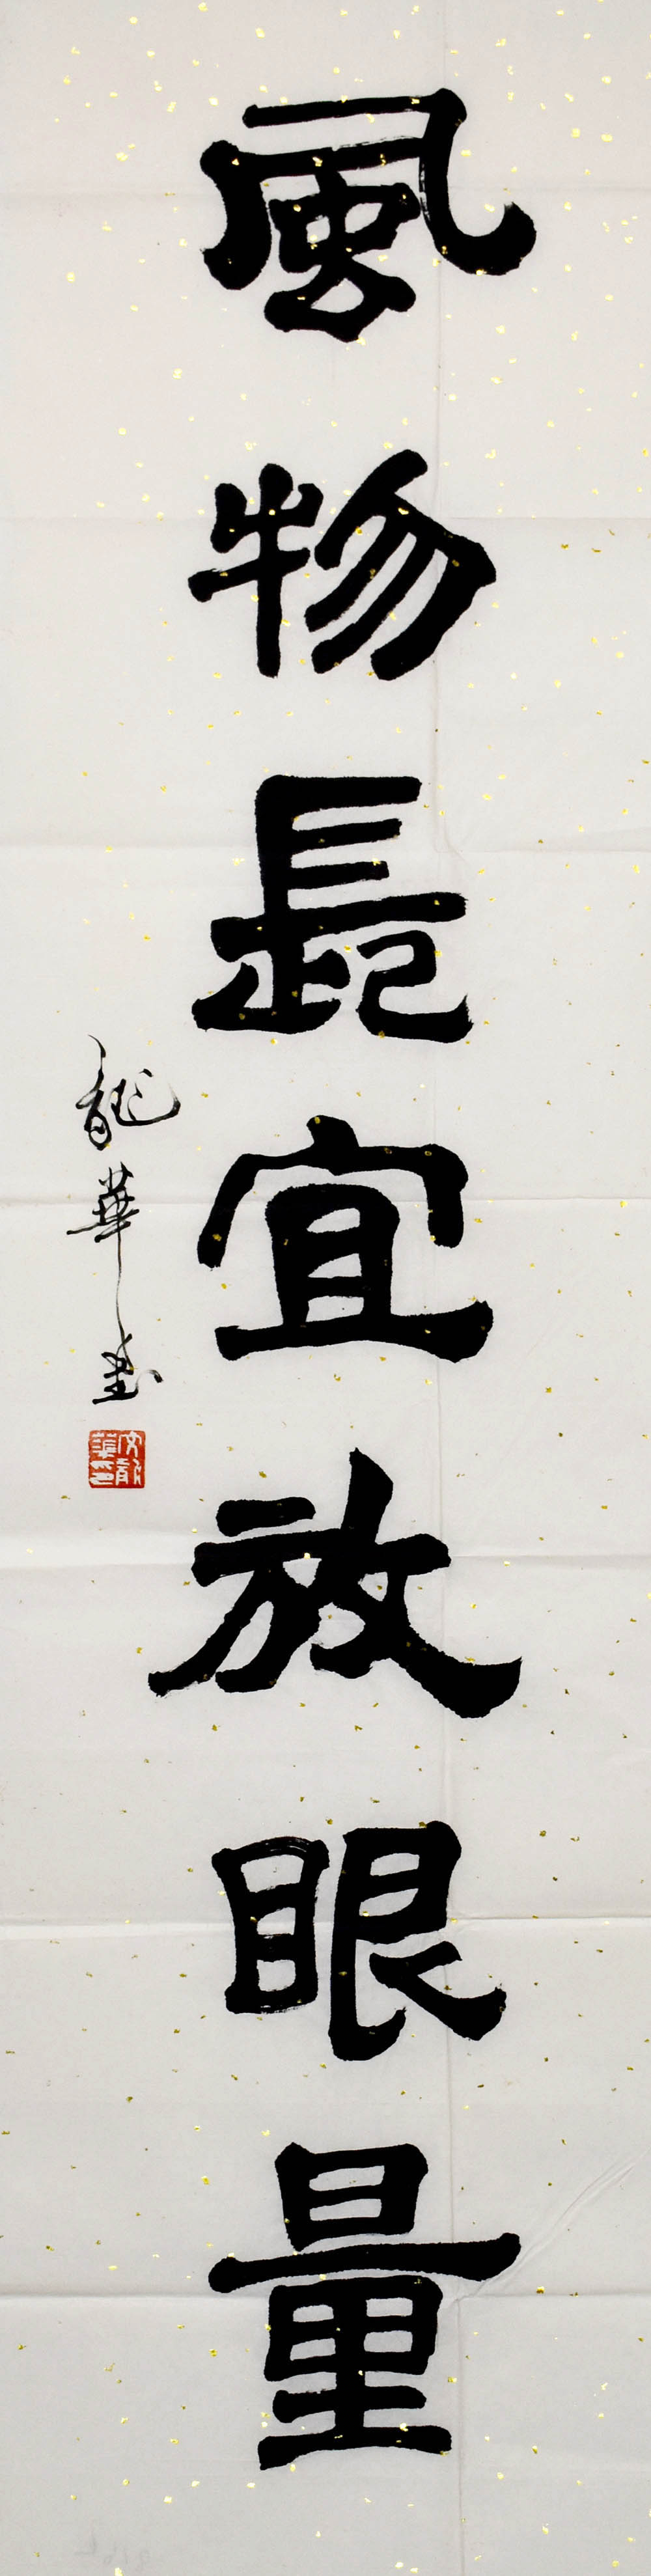 風物長宜放眼量
龍華書